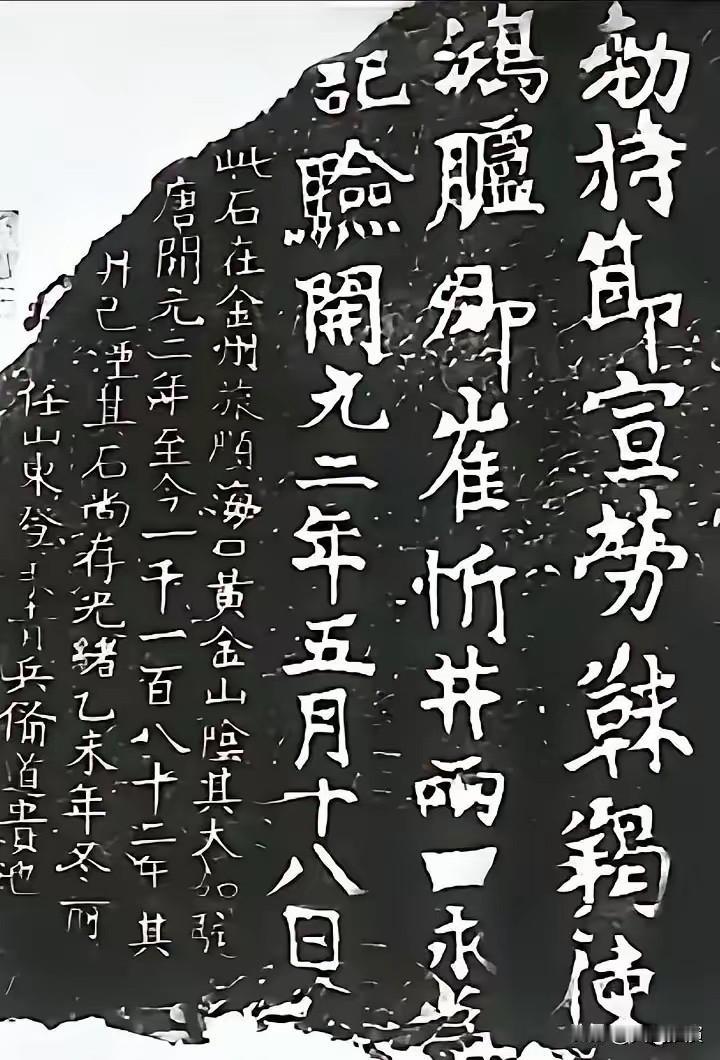 勅持節宣勞靺羯使
鴻臚卿崔忻井兩口永為
記驗開元二年五月十八日
此石在金州旅順海口黃金山陰其大如駝
唐開元二年至今一千一百八十二年其
井已湮其石尚存光緒乙未年冬前
任山東登萊青兵備道貴池